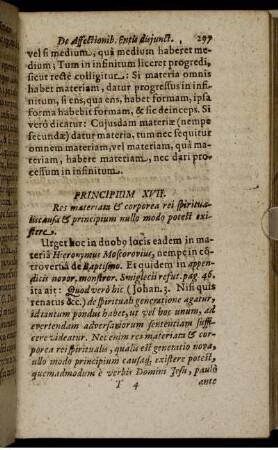 De Affectionib. Entis dujunct. 297
vel si medium, quà medium haberet me-
dium; Tum in infinitum liceret progredi,
sicut rectè colligitur. Si materia omnis
habet materiam, datur progressus in infi-
nitum, si ens, qua ens, habet formam, ipsa
forma habebit formam, & sic deinceps. Si
verò dicatur: Cujusdam materiæ (nempe
secundæ) datur materia, tum nec sequitur
omnem materiam, vel materiam, quâ ma-
teriam, habere materiam, nec dari pro-
cessum in infinitum.
PRINCIPIUM XVII.
Res materiata & corporea rei spiritua-
lis causa & principium nullo modo potest exi-
stere.
Urget hoc in duobꝰ locis eadem in mate-
riâ Hieronymus Moscorovius, nempe in cō-
troversiâ de Baptismo. Et quidem in appen-
dicis novor. monstror. Smiglecii refut. pag. 46.
ita ait: Quod verò hic (Johan. 3. Nisi quis
renatus &c.) de spirituali generatione agatur,
id tantum pondus habet, ut vel hoc unum, ad
evertendam adversariorum sententiam suffi-
cere videatur. Nec enim res materiata & cor-
porea rei spiritualis, qualis est generatio nova,
ullo modo principium causaq́; existere potest,
quemadmodum è verbis Domini Jesu, paulò
T 4 ante